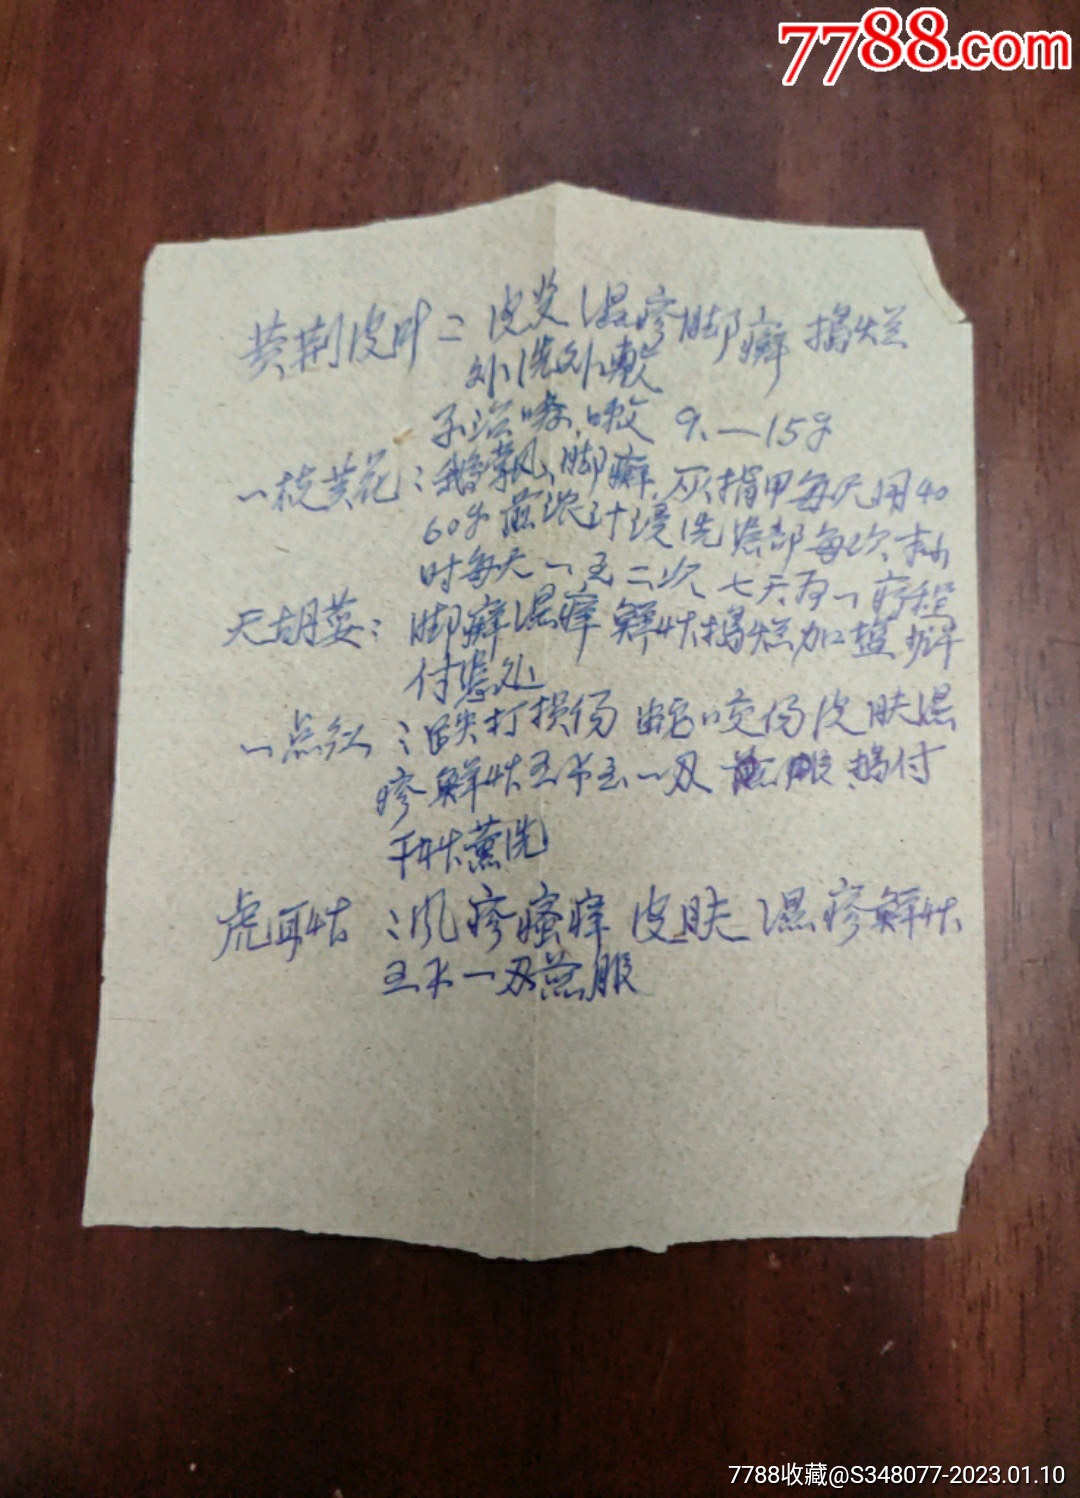 7788.com
黄荆皮叶：皮炎湿疹脚癣捣烂
外洗外敷
子治咳嗽 9.—15g
一枝黄花：鹅掌风、脚癣、灰指甲每天用40
60g煎浓汁浸洗患部每次
时每天一至二次 七天为一疗程
天胡荽：脚癣湿痒鲜草捣烂加盐
付患处
一点红：跌打损伤 蛇咬伤皮肤湿
疹鲜草五钱至一两 煎服 捣付
干草薰洗
虎耳草：风疹瘙痒 皮肤湿疹鲜草
五钱一两煎服
7788收藏@S348077-2023.01.10